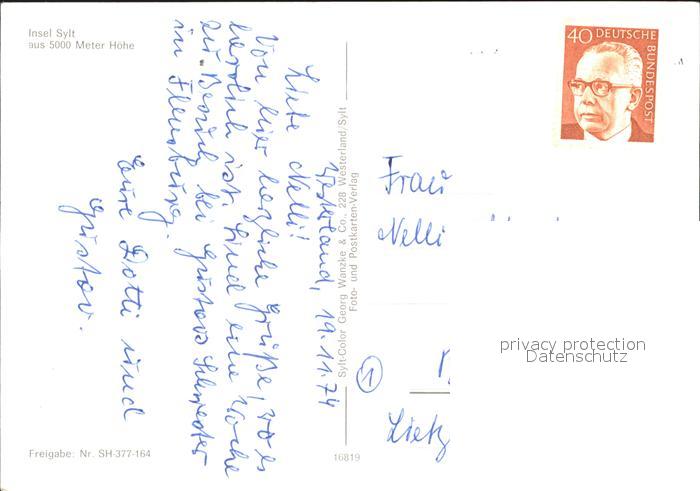 Insel Sylt
aus 5000 Meter Höhe
Westerland, 19.11.74
Liebe Nelli!
Von hier herzliche Grüße, wo es
herrlich ist. Sind eine Woche
zu Besuch bei Gustavs Schwester
in Flensburg.
Eure Dotti und
Gustav.
Freigabe: Nr. SH-377-164
16819
Sylt-Color Georg Wanzke & Co., 228 Westerland/Sylt
Foto- und Postkarten-Verlag
40 DEUTSCHE
BUNDESPOST
Frau
Nelli
1
Lietz
privacy protection
Datenschutz